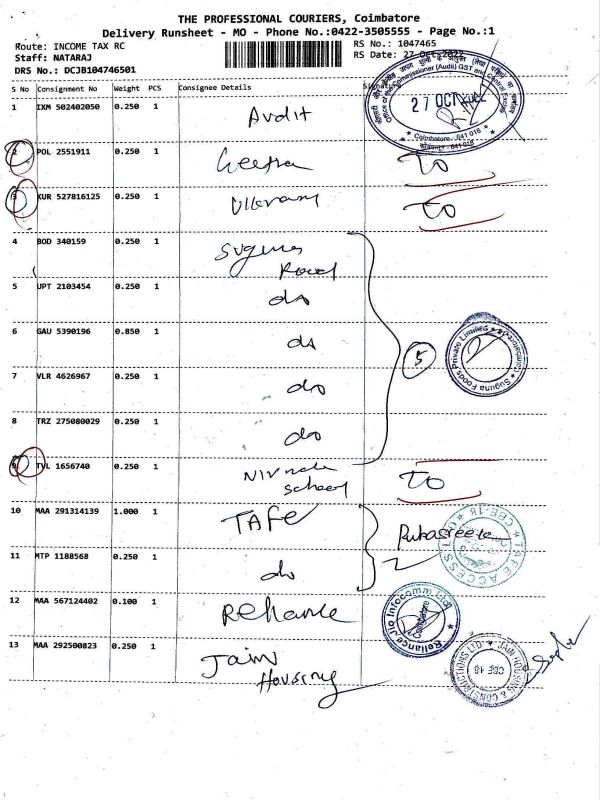 THE PROFESSIONAL COURIERS, Coimbatore
Delivery Runsheet - MO - Phone No.:0422-3505555 - Page No.:1
Route: INCOME TAX RC
Staff: NATARAJ
DRS No.: DCJB104746501
RS No.: 1047465
RS Date: 27 Oct 2022
S No Consignment No Weight PCS Consignee Details Signature
1 IXM 502402050 0.250 1 Audit
27 OCT 2022
Coimbatore - 641 018
2 POL 2551911 0.250 1 Geetha TO
3 KUR 527816125 0.250 1 Vikram TO
4 BOD 340159 0.250 1 Suguna Road
5 UPT 2103454 0.250 1 do
6 GAU 5390196 0.850 1 do
5
Suguna Foods Private Limited
7 VLR 4626967 0.250 1 do
8 TRZ 275080029 0.250 1 do
9 TVL 1656740 0.250 1 school TO
10 MAA 291314139 1.000 1 TAFE
CBE-18
11 MTP 1188568 0.250 1 do
2
12 MAA 567124402 0.100 1 Reliance
Reliance Jio Infocomm Ltd
Coimbatore
13 MAA 292500823 0.250 1 Jain Housing
JAIN HOUSING & CONSTRUCTIONS LTD
CBE-18